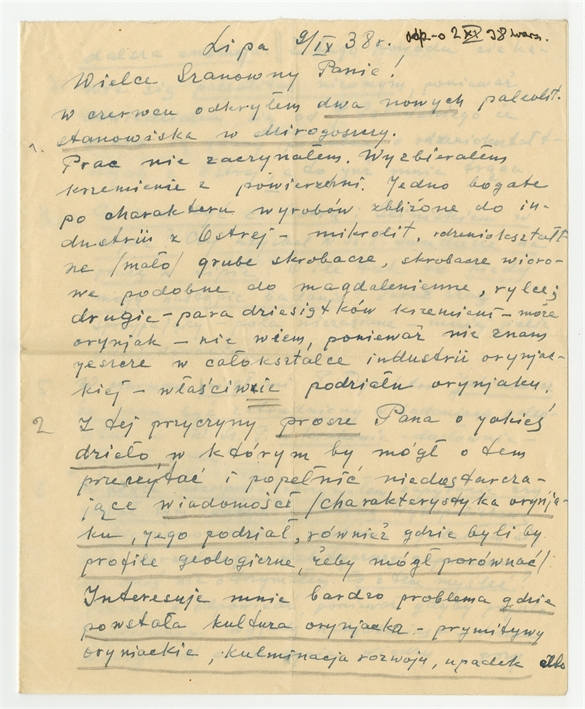 Lipa 9/IX 38 r. odp-o 2 XI 38 warsz.
Wielce Szanowny Panie!
w czerwcu odkryłem dwa nowych paleolit.
1. stanowiska w Mirogoszczy.
Prac nie zaczynałem. Wyzbierałem
krzemienie z powierzchni. Jedno bogate
po charakteru wyrobów zbliżone do in-
dustrii z Ostrej - mikrolit, rdzeniokształt
ne /mało/ grube skrobacze, skrobacze wioro-
we podobne do magdalenienne, rylce;
drugie - para dziesiątków krzemieni - może
orynjak - nie wiem, ponieważ nie znam
jeszcze w całokształce industrii orynjac-
kiej - właściwie podziału orynjaku.
2 Z tej przyczyny prosze Pana o jakieś
dzieło, w którym by mógł o tem
przeczytać i popełnić niedostarcza-
jące wiadomości /charakterystyka orynja-
ku, jego podział, również gdzie byli by
profile geologiczne, żeby mógł porównać/
Interesuje mnie bardzo problema gdzie
powstała kultura orynjacka - prymitywy
oryniackie, kulminacja rozwoju, upadek albo